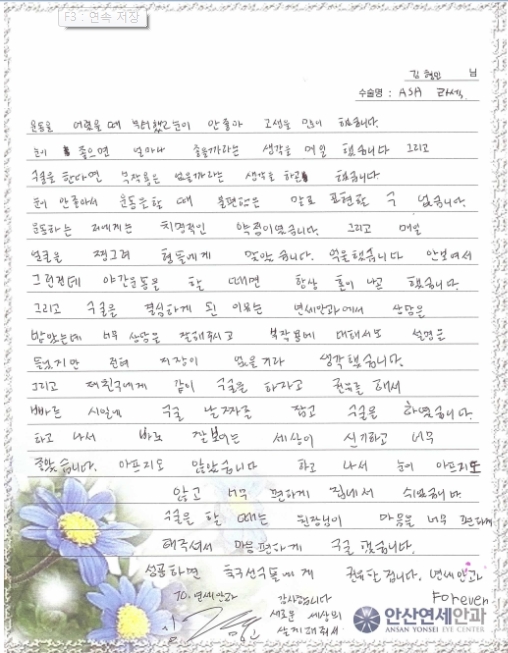 F3 : 연속 저장
김형민 님
수술명 : ASA 라섹
운동을 어렸을 때 부터했고 눈이 안좋아 고생을 많이 했습니다.
눈이 좋으면 얼마나 좋을까라는 생각을 매일 했습니다 그리고
수술을 한다면 부작용은 없을까라는 생각을 하고 했습니다
눈이 안좋아서 운동을할 때 불편함은 말로 표현할 수 없습니다.
운동하는 저에게는 치명적인 약점이였습니다. 그리고 매일
얼굴을 찡그려 형들에게 맞았습니다. 억울했습니다 안보여서
그런건데 야간운동을 할 때면 항상 혼이 나곤 했습니다
그리고 수술을 결심하게 된 이유는 연세안과에서 상담을
받았는데 너무 상담을 잘해주시고 부작용에 대해서도 설명을
들었지만 전혀 지장이 없을거라 생각했습니다.
그리고 제친구에게 같이 수술을 하자고 권유를 해서
빠른 시일에 수술 날짜를 잡고 수술을 하였습니다.
하고 나서 바로 잘보이는 세상이 신기하고 너무
좋았습니다. 아프지도 않았습니다 하고 나서 눈이 아프지도
않고 너무 편하게 집에서 쉬었습니다
수술을 할 때는 원장님이 마음을 너무 편하게
해주셔서 마음편하게 수술 했습니다.
성공하면 축구선수들에게 권유할 겁니다. 연세안과
Forever
TO. 연세안과 감사합니다
새로운 세상의
살게해줘서
안산연세안과
ANSAN YONSEI EYE CENTER